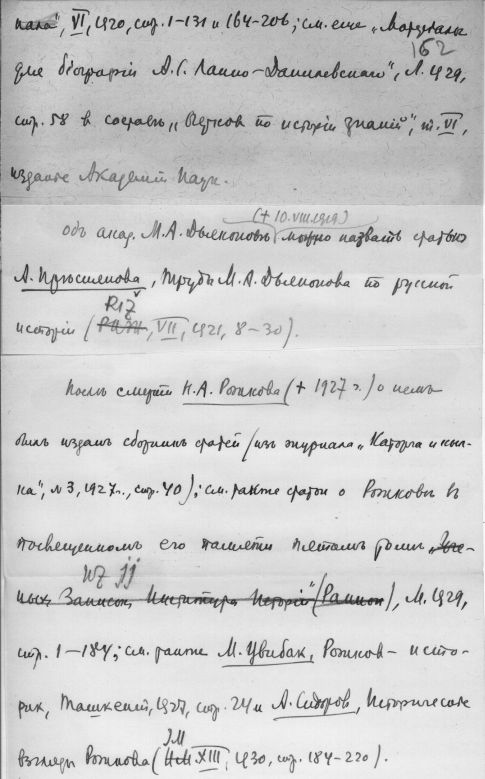 нала", VI, 1920, стр. 1-131 и 164-206; см. еще „Матеріалы
162
для біографіи А.С. Лаппо-Данилевскаго", Л. 1929,
стр. 58 в составѣ „Очерков по исторіи знаній", т. VI,
изданіе Академіи Наук.
(+ 10.VIII.1919)
Объ акад. М.А. Дьяконовѣ можно назвать статью
А. Прѣснякова, Труды М.А. Дьяконова по русской
RIŽ
исторіи (РИЖ, VII, 1921, 8-30).
Послѣ смерти Н.А. Рожкова (+ 1927 г.) о нем
был издан сборник статей (из журнала „Каторга и ссыл-
ка", №3, 1927 г., стр. 40); см. также статьи о Рожковѣ в
посвященном его памяти пятом томѣ „Уче-
UZ
ных Записок Института Исторіи" (Ранион), М. 1929,
стр. 1-184; см. также М. Цвибак, Рожков - исто-
рик, Ташкент, 1927, стр. 24 и А. Сидоров, Историческіе
IM
взгляды Рожкова (ИМ XIII, 1930, стр. 184-220).